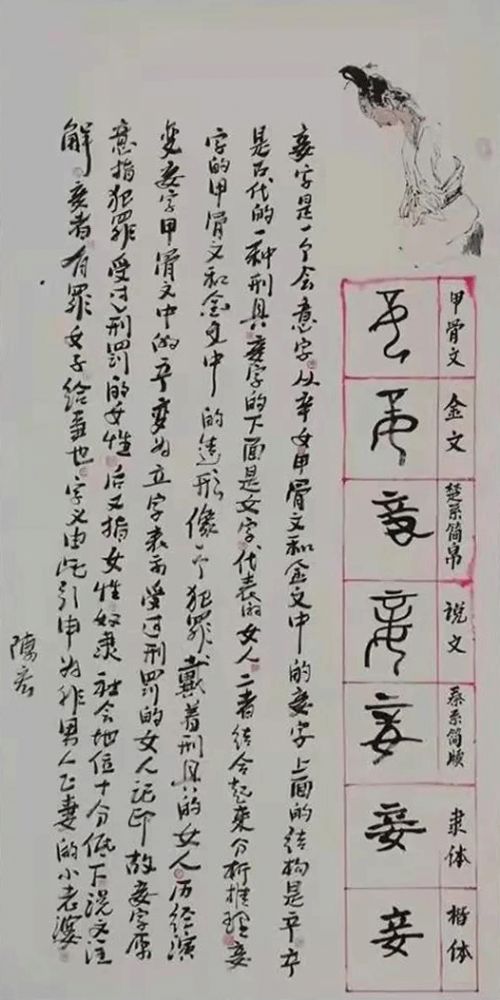 甲骨文
金文
楚系简帛
说文
秦系简牍
隶体
楷体
妾
妾
妾
妾
妾
妾
妾
妾字是一个会意字从辛女甲骨文和金文中的妾字上面的结构是辛辛
是古代的一种刑具妾字的下面是女字代表的女人二者结合起来分析推理妾
字的甲骨文和金文中的造形像个犯罪戴着刑具的女人历经演
变妾字甲骨文中的辛变为立字表示受过刑罚的女人记印故妾字原
意指犯罪受过刑罚的女性后又指女性奴隶社会地位十分低下说文注
解妾者有罪女子给事也字义由此引申为非男人正妻的小老婆